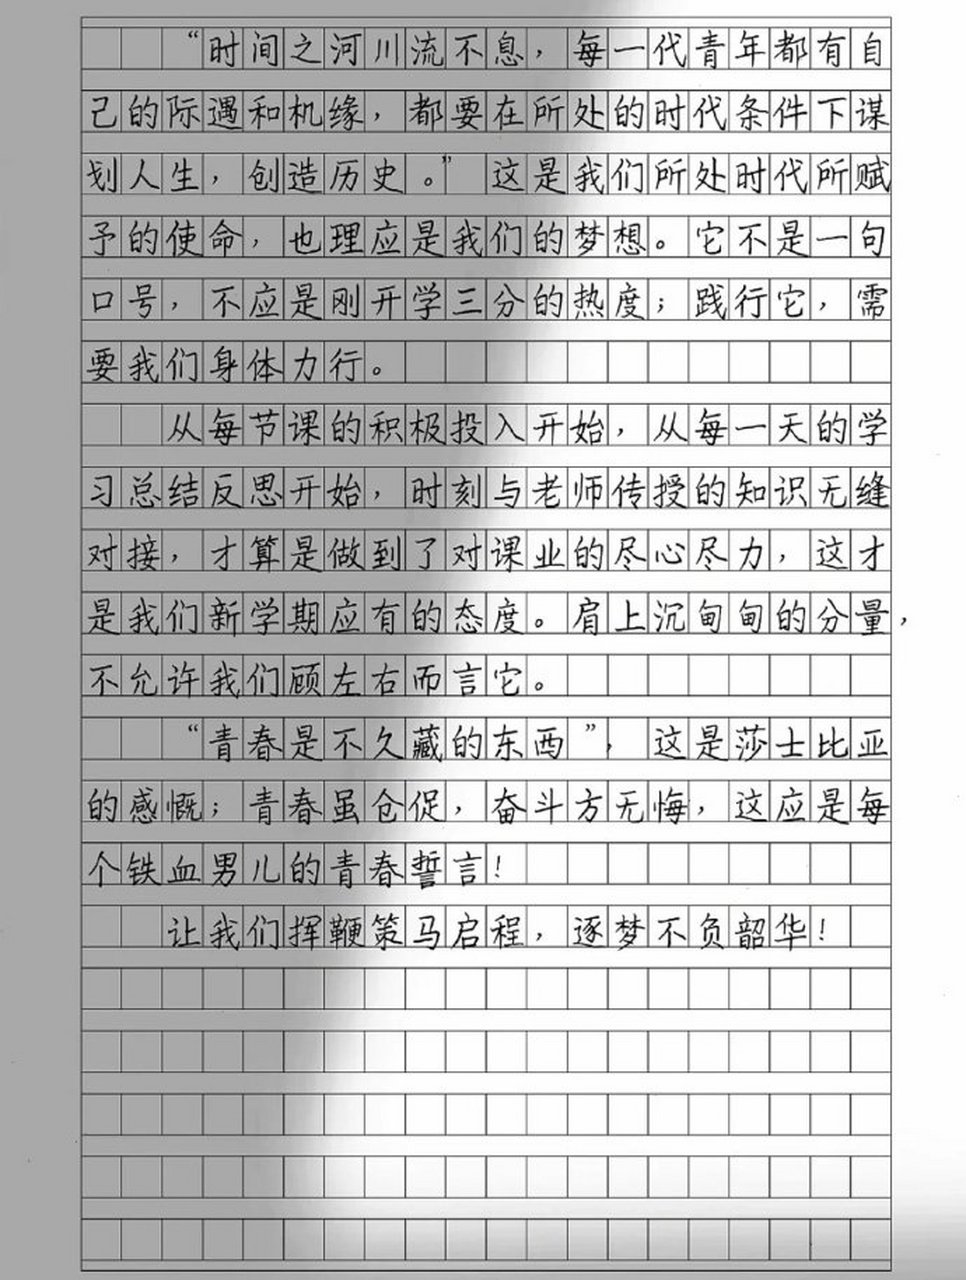 “时间之河川流不息，每一代青年都有自
己的际遇和机缘，都要在所处的时代条件下谋
划人生，创造历史。”这是我们所处时代所赋
予的使命，也理应是我们的梦想。它不是一句
口号，不应是刚开学三分的热度；践行它，需
要我们身体力行。
从每节课的积极投入开始，从每一天的学
习总结反思开始，时刻与老师传授的知识无缝
对接，才算是做到了对课业的尽心尽力，这才
是我们新学期应有的态度。肩上沉甸甸的分量，
不允许我们顾左右而言它。
“青春是不久藏的东西”，这是莎士比亚
的感慨；青春虽仓促，奋斗方无悔，这应是每
个铁血男儿的青春誓言！
让我们挥鞭策马启程，逐梦不负韶华！